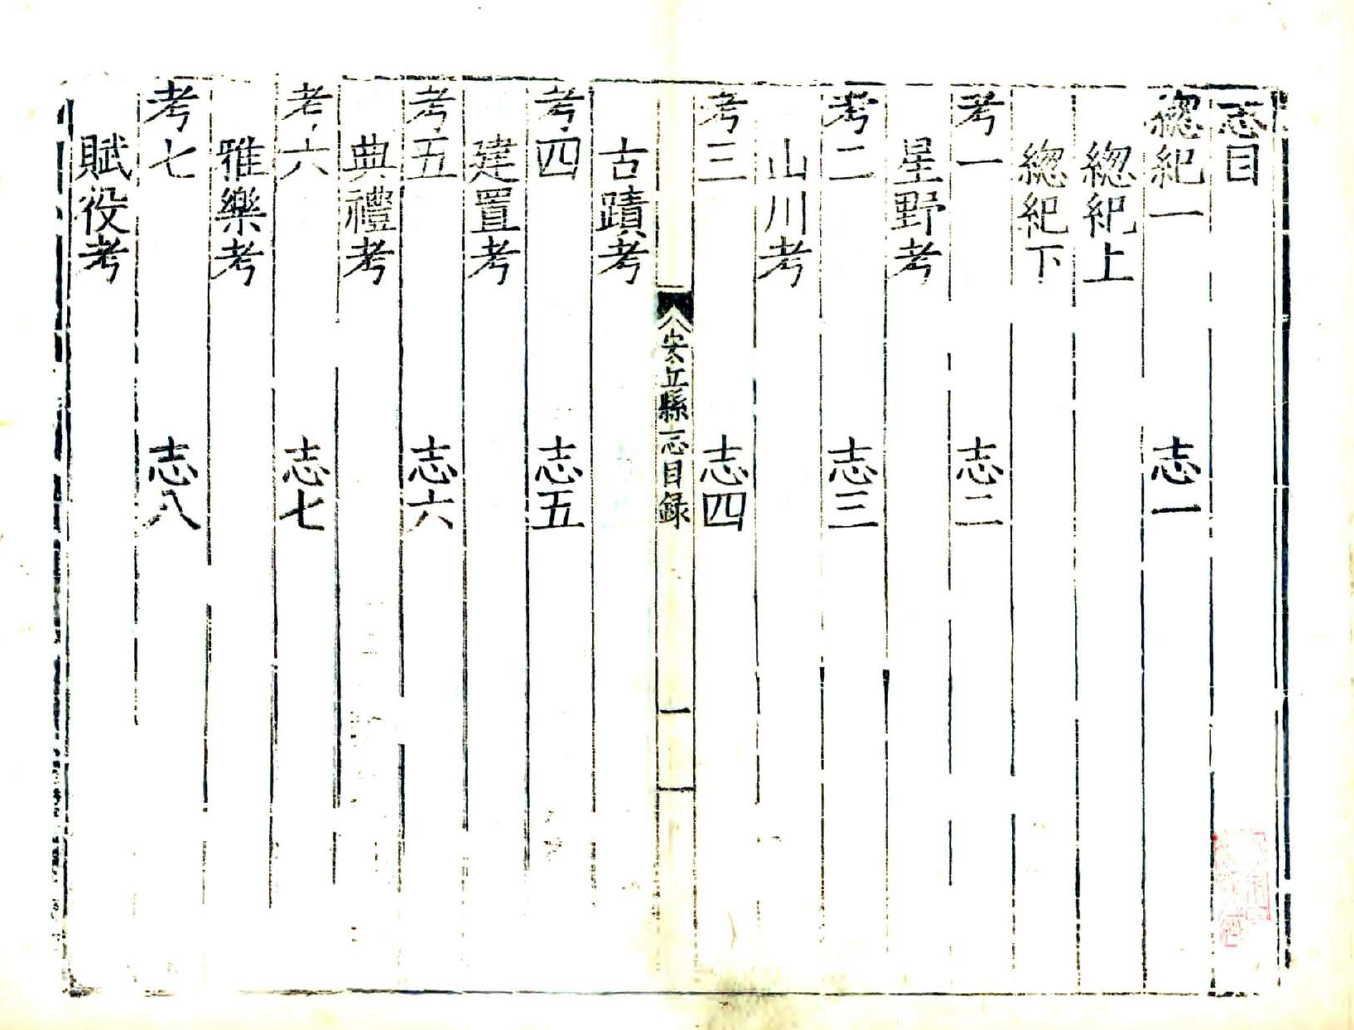 志目
緫紀一　志一
緫紀上
緫紀下
考一　志二
星野考
考二　志三
山川考
考三　志四
安丘縣志目録　一
古蹟考
考四　志五
建置考
考五　志六
典禮考
考六　志七
雅樂考
考七　志八
賦役考